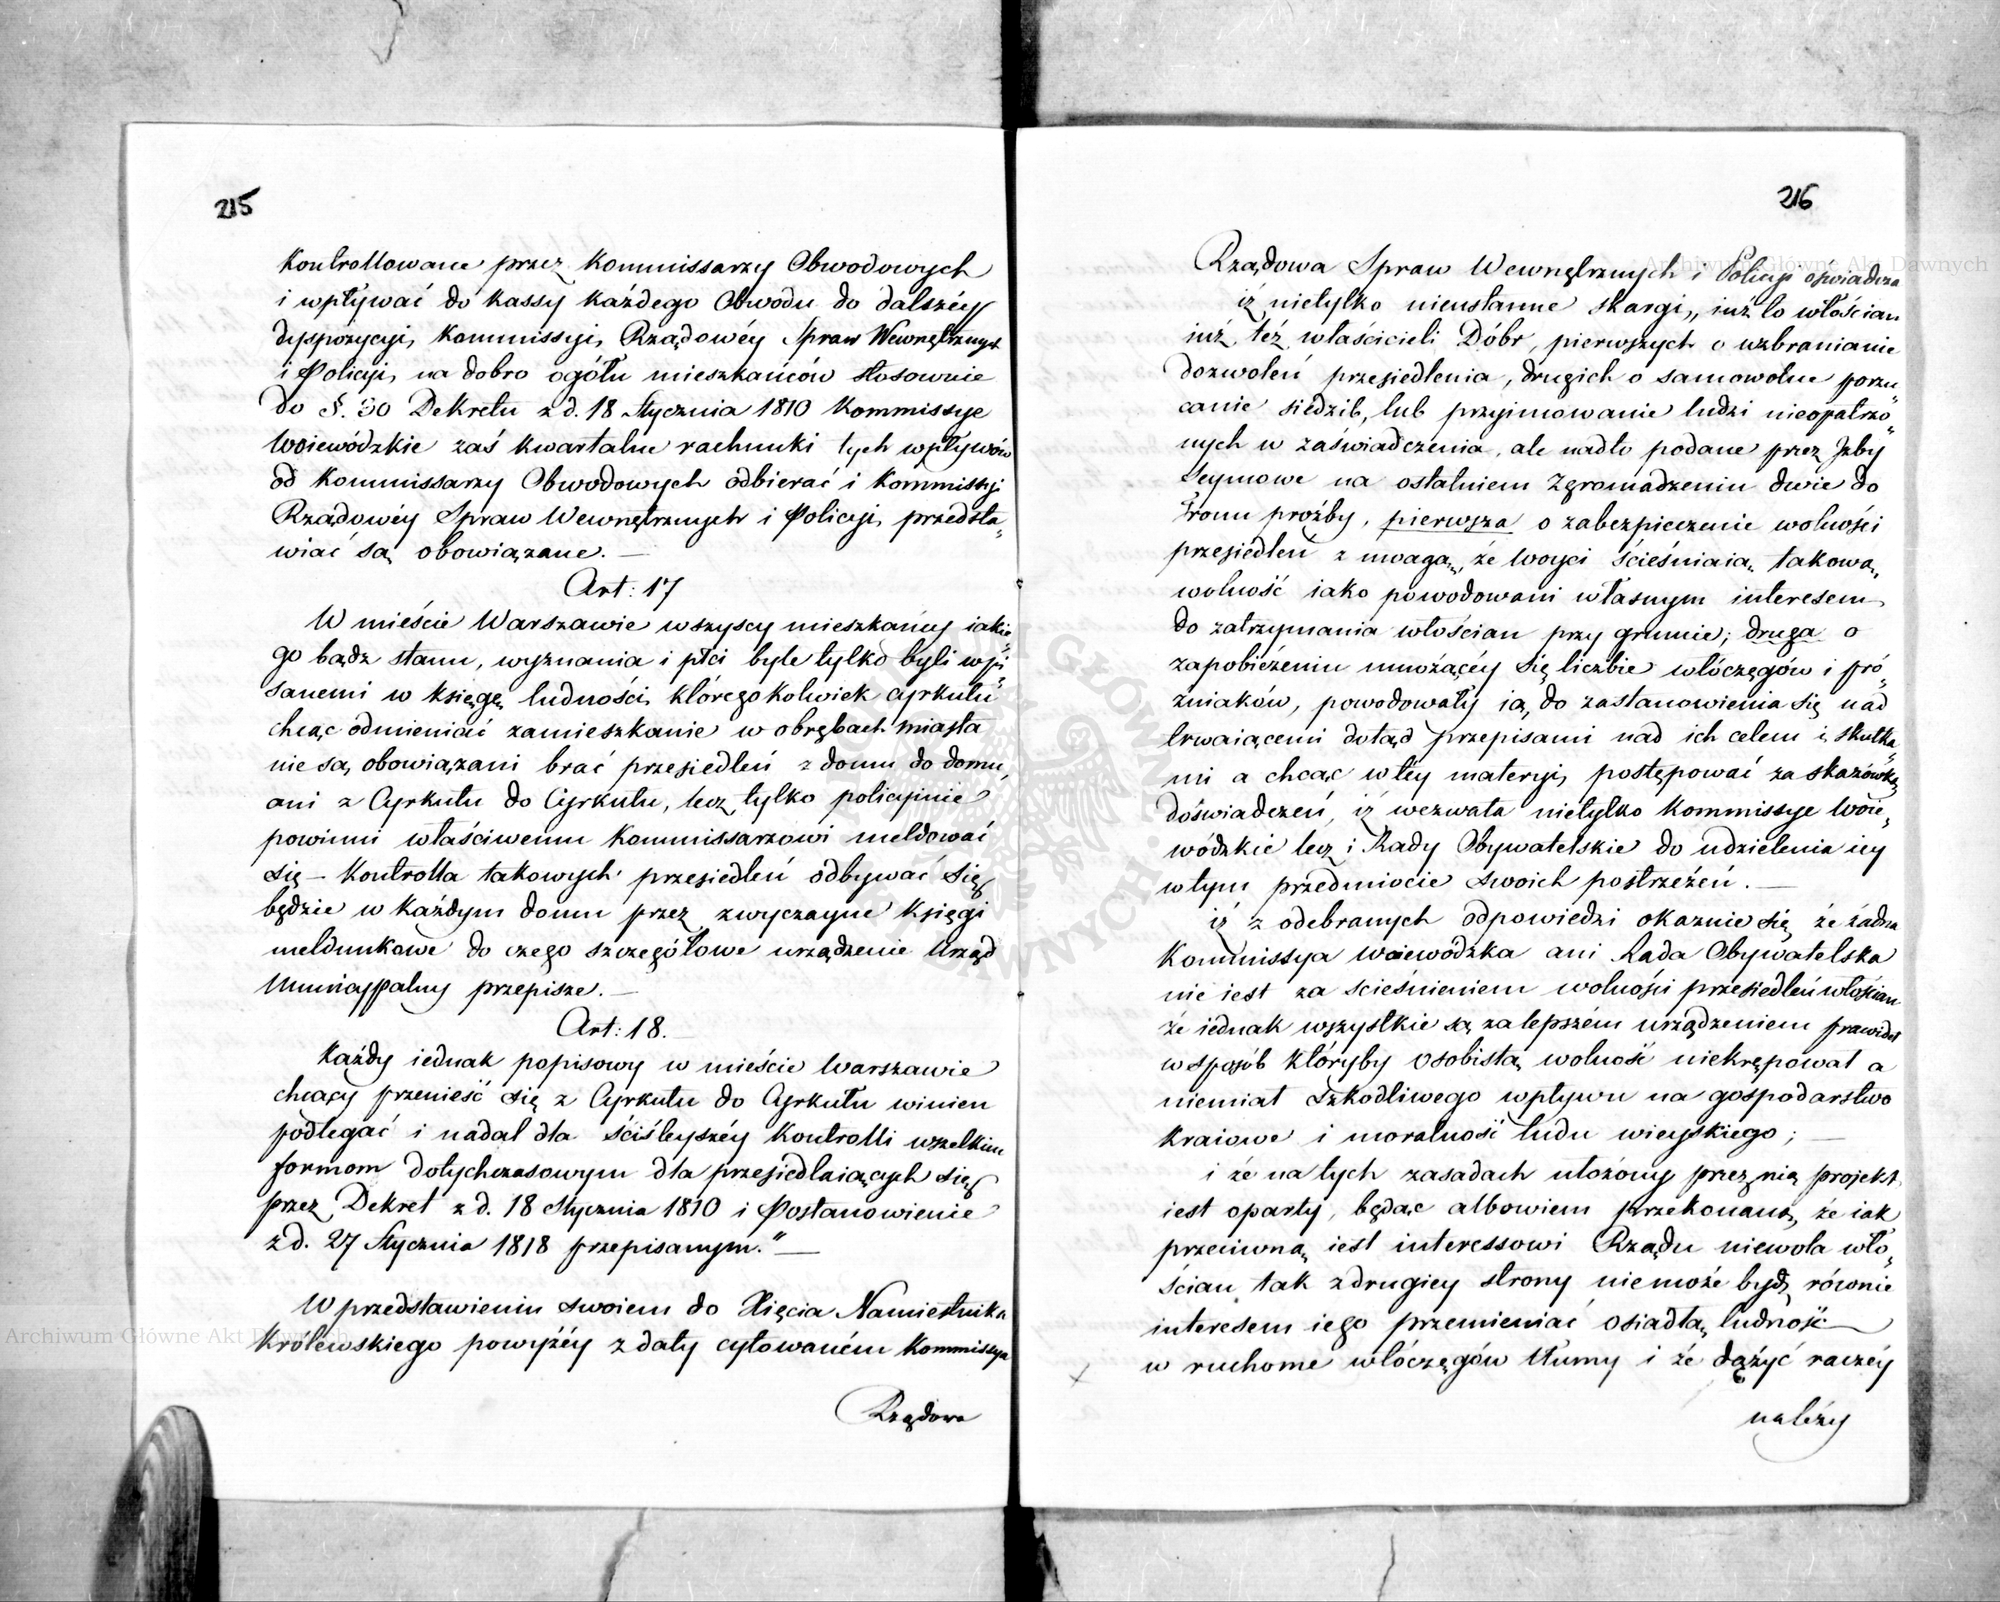 215
Kontrollowane przez Kommissarzy Obwodowych
i wpływać do kassy każdego Obwodu do dalszéy
dyspozycyi, Kommissyi, Rządowéy Spraw Wewnętrznych
i Policyi, na dobro ogółu mieszkańców stosownie
do §. 30 Dekretu z d. 18 Stycznia 1810 Kommissye
Woiewódzkie zaś kwartalne rachunki tych wpływów
od Kommissarzy Obwodowych odbierać i Kommissyi
Rządowéy Spraw Wewnętrznych i Policyi, przedsta„
wiać są obowiązane. —
Art: 17
W mieście Warszawie wszyscy mieszkańcy iakie„
go bądz stanu, wyznania i płci byle tylko byli wpi„
sanemi w księgę ludności któregokolwiek cyrkułu
chcąc odmieniać zamieszkanie w obrębach miasta
nie są obowiązani brać przesiedleń z domu do domu,
ani z Cyrkułu do Cyrkułu, lecz tylko policyinie
powinni właściwemu Kommissarzowi meldować
się – Kontrolla takowych przesiedleń odbywać się
będzie w każdym domu przez zwyczayne księgi
meldunkowe do czego szczegółowe urządzenie Urząd
Municypalny przepisze. —
Art: 18.
Każdy iednak popisowy w mieście Warszawie
chcący przenieść się z Cyrkułu do Cyrkułu winien
podlegać i nadal dla ściśleyszéy Kontrolli wszelkim
formom dotychczasowym dla przesiedlaiących się
przez Dekret z d. 18 Stycznia 1810 i Postanowienie
z d. 27 Stycznia 1818 przepisanym." —
W przedstawieniu swoiem do Xięcia Namiestnika
Królewskiego powyżéy z daty cytowaném Kommissya
Rządowa
216
Rządowa Spraw Wewnętrznych i Policyi oświadcza
iż nietylko nieustanne skargi, iuż to włościan
iuż też właścicieli Dóbr, pierwszych o wzbranianie
dozwoleń przesiedlenia, drugich o samowolne porzu„
canie siedzib, lub przyimowanie ludzi nieopatrzo„
nych w zaświadczenia, ale nadto podane przez Izby
Seymowe na ostatniem Zgromadzeniu dwie do
Tronu proźby, pierwsza o zabezpieczenie wolności
przesiedleń z uwagą, że Woyci ścieśniaią takową
wolność iako powodowani własnym interesem
do zatrzymania włościan przy gruncie; druga o
zapobieżeniu mnożącéy się liczbie włóczęgów i pró„
żniaków, powodowały ią, do zastanowienia się nad
trwaiącemi dotąd przepisami nad ich celem i skutka„
mi a chcąc w téy materyi, postępować za skazówką
doświadczeń, iż wezwała nietylko Kommissye Woie„
wódzkie lecz i Rady Obywatelskie do udzielenia iey
w tym przedmiocie swoich postrzeżeń. —
iż z odebranych odpowiedzi okazuie się, że żadna
Kommissya Woiewódzka ani Rada Obywatelska
nie iest za ścieśnieniem wolności przesiedleń włościan
że iednak wszystkie są za lepszém urządzeniem prawideł
w sposób któryby osobistą wolność niekrępował a
niemiał szkodliwego wpływu na gospodarstwo
kraiowe i moralność ludu wieyskiego; —
i że na tych zasadach ułożony przez nią projekt
iest oparty, będąc albowiem przekonaną, że iak
przeciwną iest interessowi Rządu niewola wło„
ścian, tak z drugiey strony nie może bydź równie
interesem iego przemieniać osiadłą ludność
w ruchome włóczęgów tłumy i że dążyć raczéy
należy
Archiwum Główne Akt Dawnych
Archiwum Główne Akt Dawnych